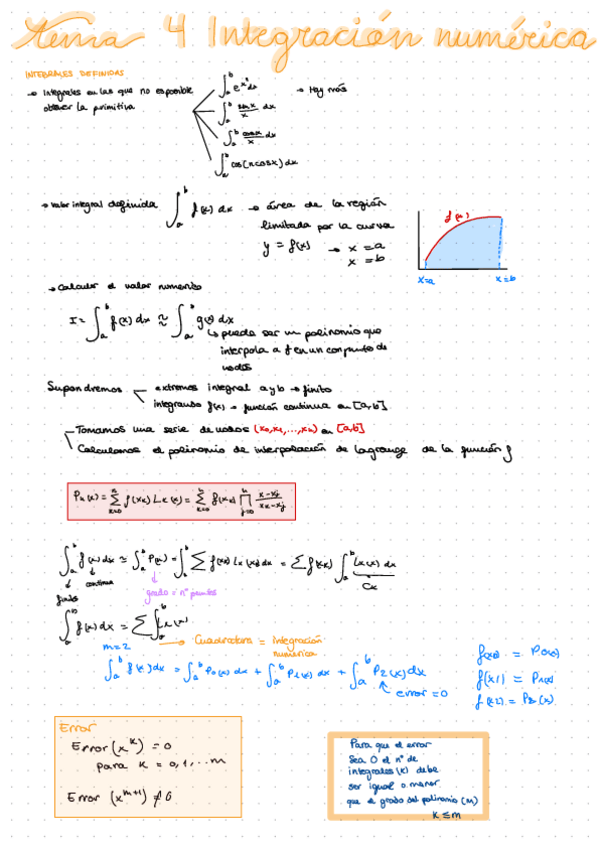 tema 4 Integración numérica
INTEGRALES DEFINIDAS
→ Integrales en las que no es posible
obtener la primitiva
∫_a^b e^{x²} dx → Hay más
∫_a^b sen x / x dx
∫_a^b cos x / x dx
∫_a^b cos(n cos x) dx
→ Valor integral definida ∫_a^b f(x) dx → área de la región
limitada por la curva
y = f(x) → x = a
x = b
f(x)
x=a x=b
→ Calcular el valor numérico
I = ∫_a^b f(x) dx ≈ ∫_a^b g(x) dx
↳ puede ser un polinomio que
interpola a f en un conjunto de
nodos
Supondremos extremos integral a y b → finito
integrando f(x) → función continua en [a,b]
Tomamos una serie de nodos (x0,x1,...,xn) en [a,b]
Calculamos el polinomio de interpolación de Lagrange de la función f
Pn(x) = Σ_{k=0}^n f(xk) Lk(x) = Σ_{k=0}^n f(xk) ∏_{j=0}^n x-xj / xk-xj
∫_a^b f(x) dx ≈ ∫_a^b P(x) = ∫_a^b Σ f(xk) Lk(x) dx = Σ f(xk) ∫_a^b Lk(x) dx
Ck
continua
finito
grado = nº puntos
∫_a^b f(x) dx = Σ ∫_a^b
→ Cuadratura = Integración
numérica
m=2
∫_a^b f(x) dx = ∫_a^b P0(x) dx + ∫_a^b P1(x) dx + ∫_a^b P2(x) dx
error = 0
f(x0) = P0(x)
f(x1) = P1(x)
f(x2) = P2(x)
Error
Error (x^k) = 0
para k = 0,1,...m
Error (x^{m+1}) ≠ 0
Para que el error
sea 0 el nº de
integrales (k) debe
ser igual o menor
que el grado del polinomio (m)
k ≤ m